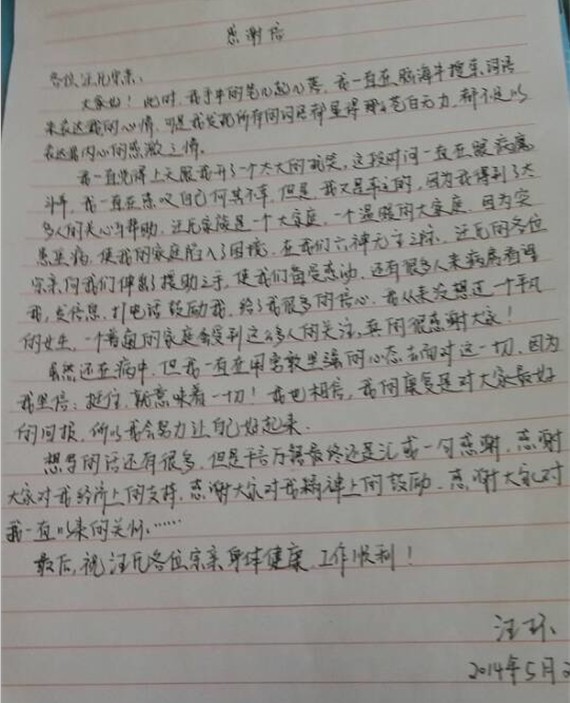 感谢信
各位汪氏宗亲、
大家好！此时，我手中的笔几起几落，我一直在脑海中搜索词语
来表达我的心情，可是我发现所有的词语都显得那么苍白无力，都不足以
表达我内心的感激之情。
我一直觉得上天跟我开了一个大大的玩笑，这段时间一直在跟病魔
斗争，我一直在感叹自己何其不幸，但是我又是幸运的，因为我得到了太
多人的关心与帮助，汪氏家族是一个大家庭，一个温暖的大家庭，因为突
患重病，使我的家庭陷入了困境，在我们六神无主之际，汪氏的各位
宗亲向我们伸出了援助之手，使我们备受感动，还有很多人来病房看望
我，发信息、打电话鼓励我，给了我很多的信心，我从来没想过一个平凡
的女生，一个普通的家庭会受到这么多人的关注，真的很感谢大家！
虽然还在病中，但我一直在用勇敢坚强的心态去面对这一切，因为
我坚信：挺住，就意味着一切！我也相信，我的康复是对大家最好
的回报，所以我会努力让自己好起来。
想写的话还有很多，但是千言万语最终还是汇成一句感谢，感谢
大家对我经济上的支持，感谢大家对我精神上的鼓励，感谢大家对
我一直以来的关怀……
最后，祝汪氏各位宗亲身体健康，工作顺利！
汪环
2014年5月2